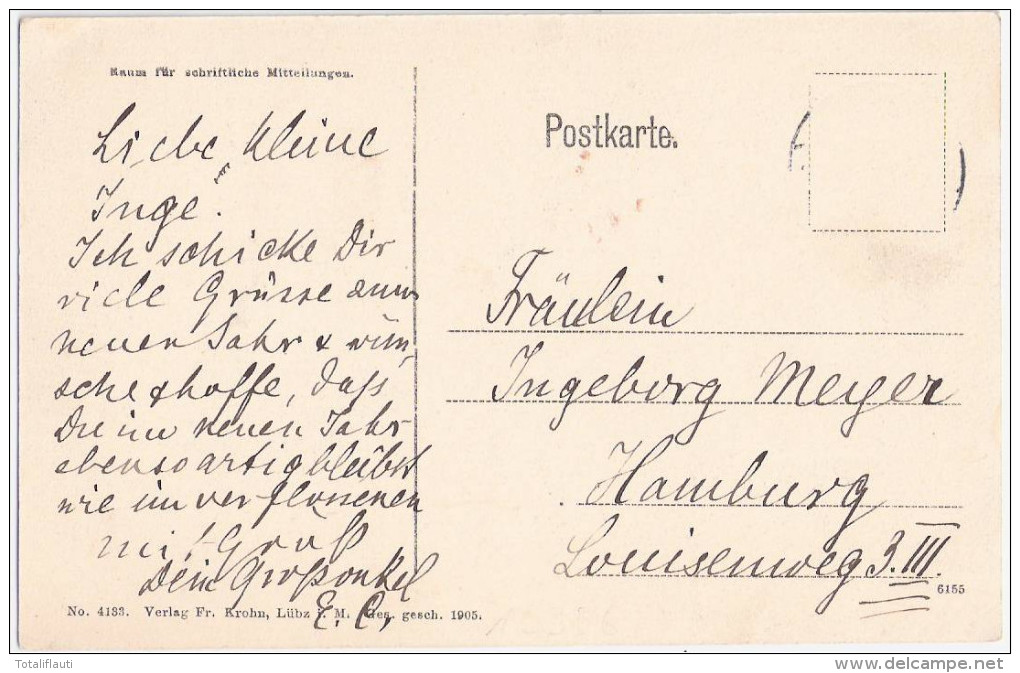 Raum für schriftliche Mitteilungen.
Liebe kleine
Inge.
Ich schicke Dir
viele Grüsse zum
neuen Jahr & wün-
sche & hoffe, daß
Du im neuen Jahr
ebenso artig bleibst
wie im verflossenen
mit Gruß
Dein Großonkel
E. C.
No. 4133. Verlag Fr. Krohn, Lübz i. M. Ges. gesch. 1905.
Postkarte.
Fräulein
Ingeborg Meyer
Hamburg
Louisenweg 3. III.
6155
Totaliflauti
www.delcampe.net